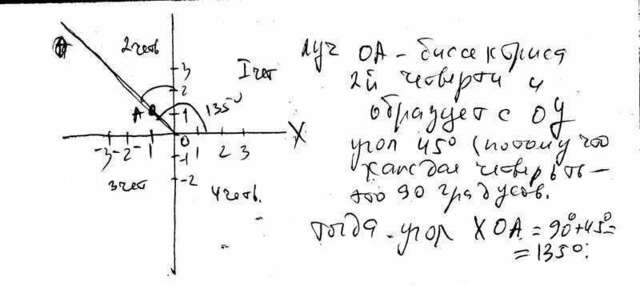 2 четв
I чет
3
2
1
A
135°
0
X
-3 -2 -1 1 2 3
-1
-2
3 чет
4 четв.
луч OA - биссектриса
2й четверти и
образует с OY
угол 45° (потому что
каждая четверть -
это 90 градусов.
тогда угол XOA = 90°+45°=
= 135°.